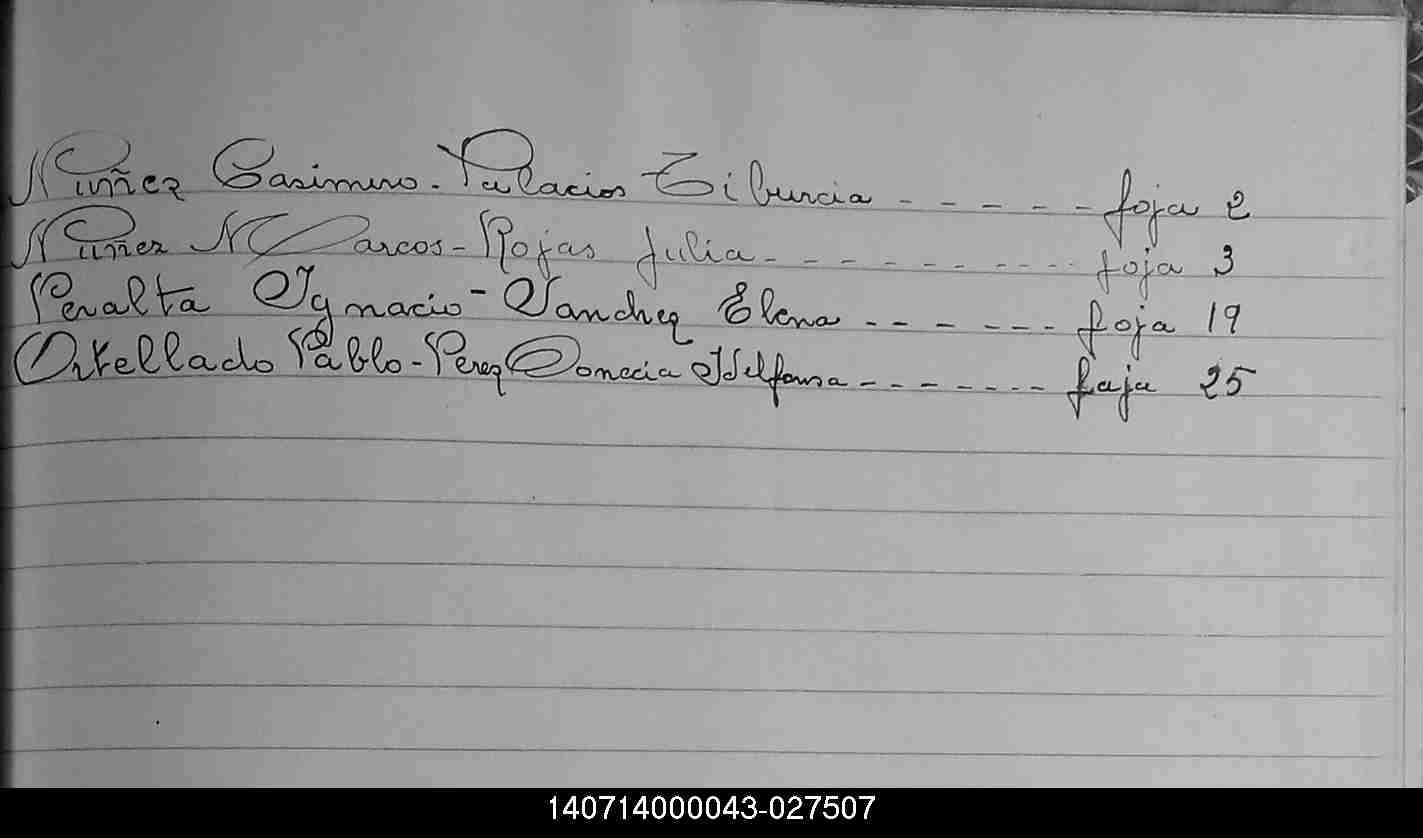 Nuñez Casimiro - Palacios Tiburcia - - - - - foja 2
Nuñez Marcos - Rojas Julia - - - - - - - - - - foja 3
Peralta Ygnacio - Sanchez Elena - - - - - - foja 19
Ortellado Pablo - Perez Ildelfonsa - - - - - - - foja 25
140714000043-027507